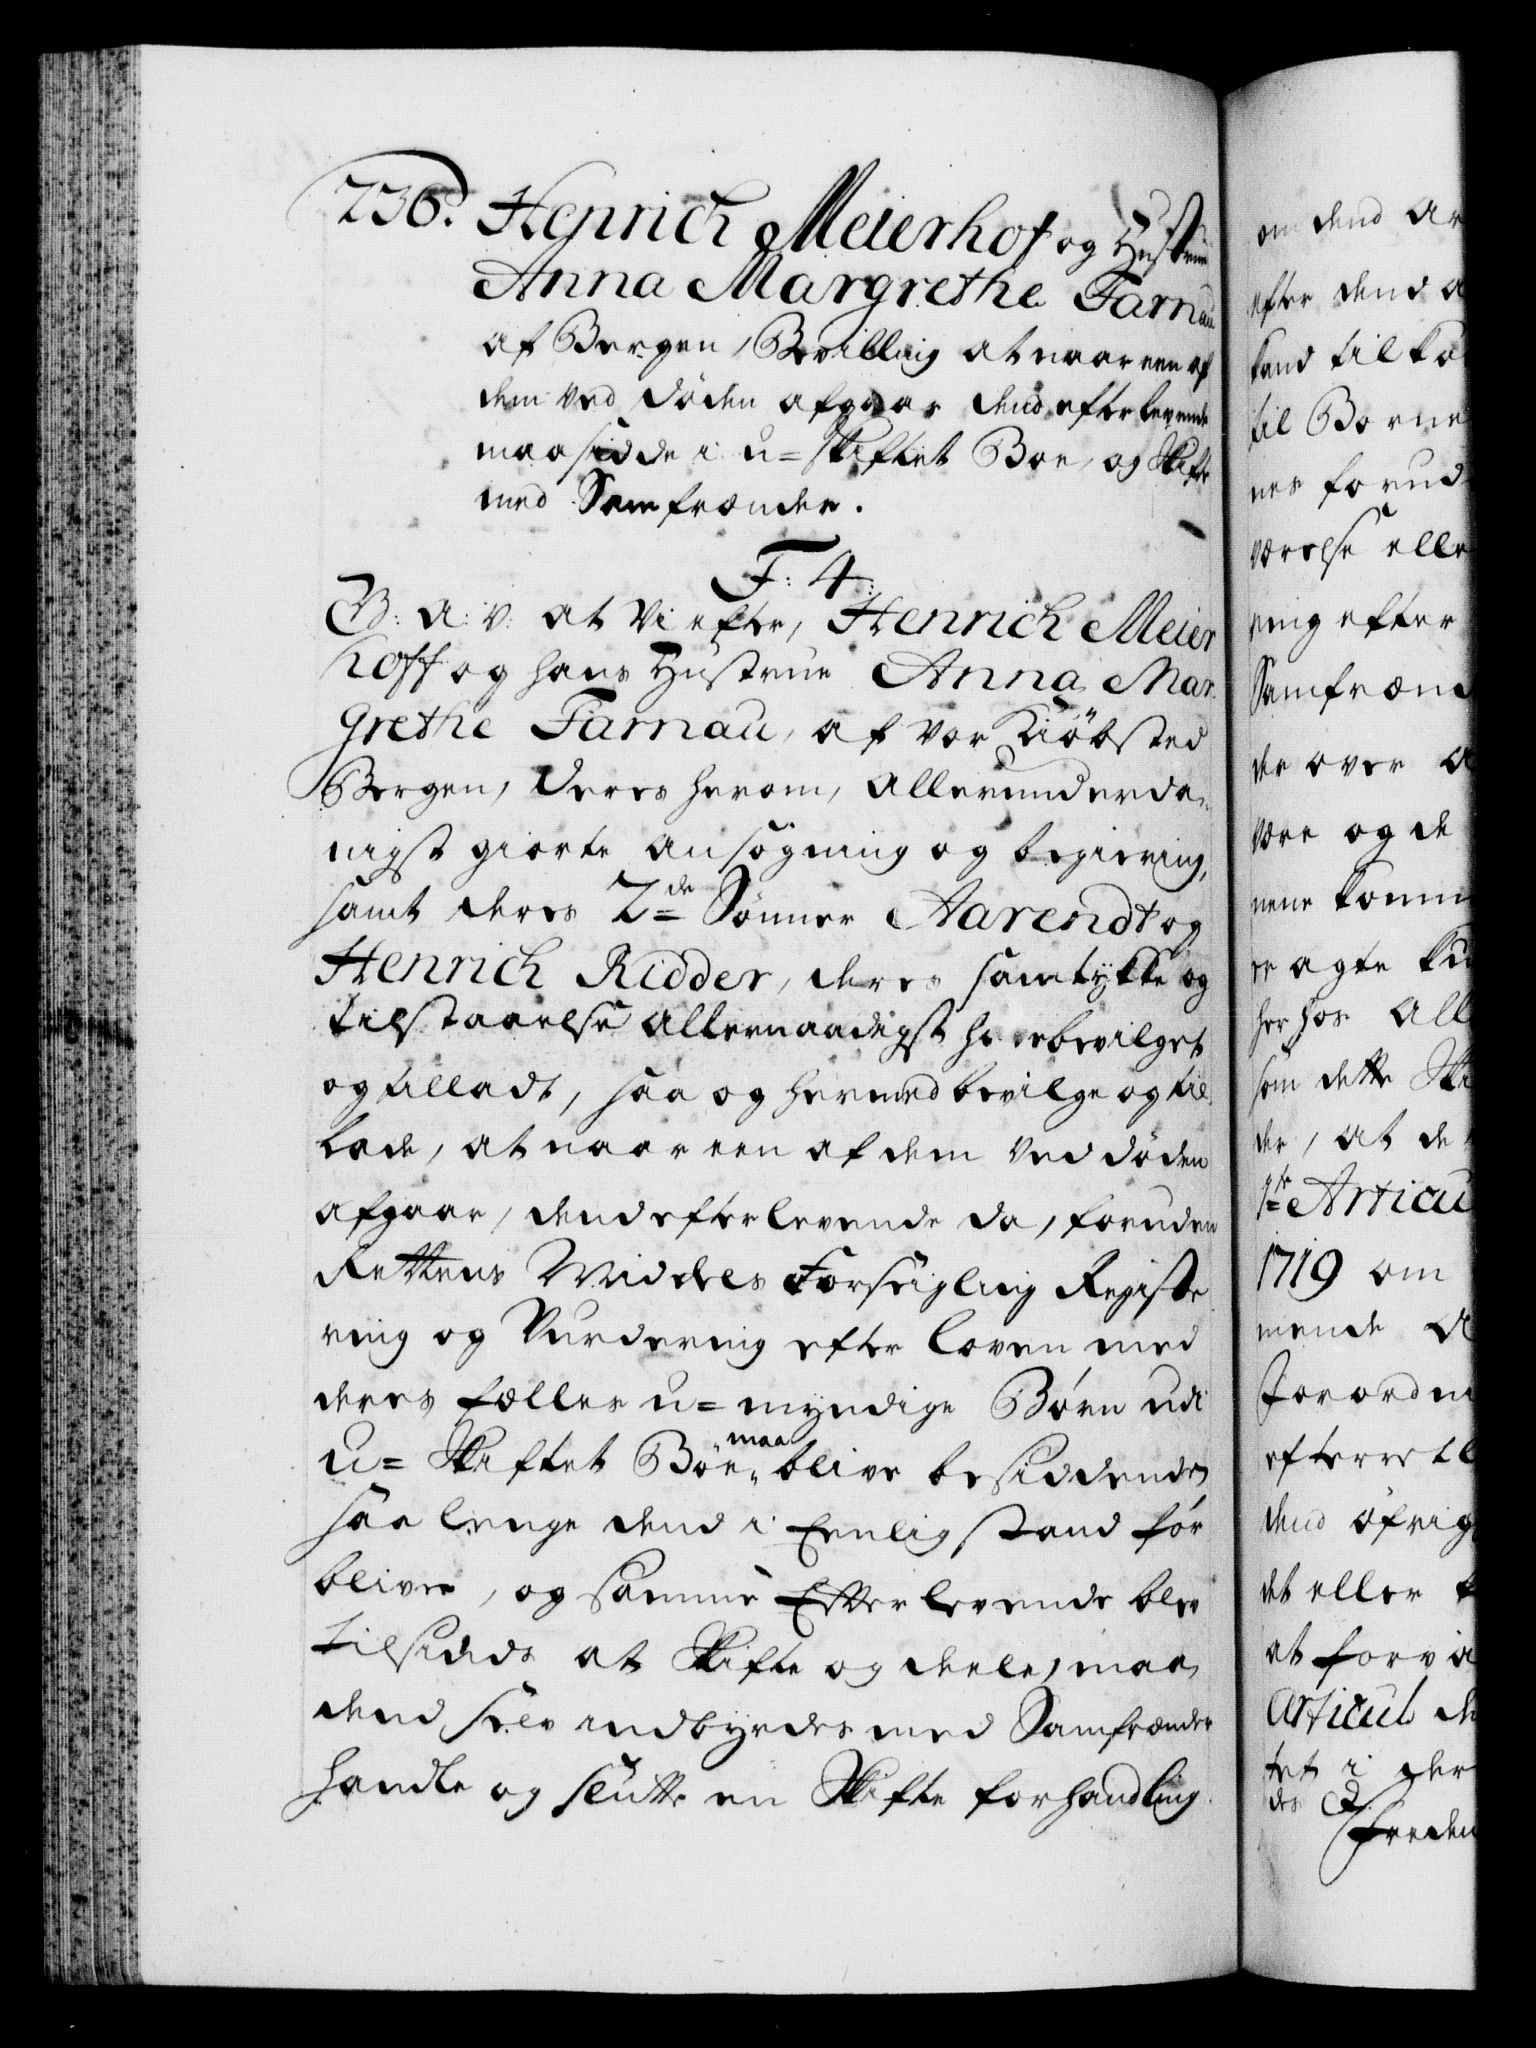 236. Henrich Meierhof og Hustrue
Anna Margrethe Farnau
af Bergen, Bevilling at naar een af
dem ved døden afgaar dend efterlevende
maa sidde i u=skiftet Boe, og skifte
med Samfrænder.
F: 4:
G: A: V: at Vi efter, Henrich Meier
hoff og hans Hustrue Anna Mar-
grethe Farnau, af vor Kiöbsted
Bergen, deres herom, allerunderda-
nigst giorte ansøgning og begiering,
samt deres 2de Sønner Aarendt og
Henrich Ridder, deres samtykke og
tilstaaelse allernaadigst have bevilget
og tilladt, saa og hermed bevilge og til-
lade, at naar een af dem ved døden
afgaar, dend efterlevende da, foruden
Rettens Middels Forseigling Registe-
ring og Vurdering efter loven med
deres fælles u=myndige Børn udi
u=skiftet Böe maa blive besiddende
saa lenge dend i Eenlig stand for
bliver, og samme Efterlevende blev
tilsinds at skifte og deele, maa
dend selv indbyrdes med Samfrænder
handle og slutte en Skifte forhandling.
om dend ar
efter dend a
kand tilko
til Borne
nes forud
værelse elle
ning efter
Samfrænd
de over a
være og de
nene komm
er agte ku
her hos all
som dette Ski
der, at de
1ste Articu
1719 om
mende a
Forordni
efterretl
dend öfrig
det eller k
at forva
Articul de
tet i der
des
Freden